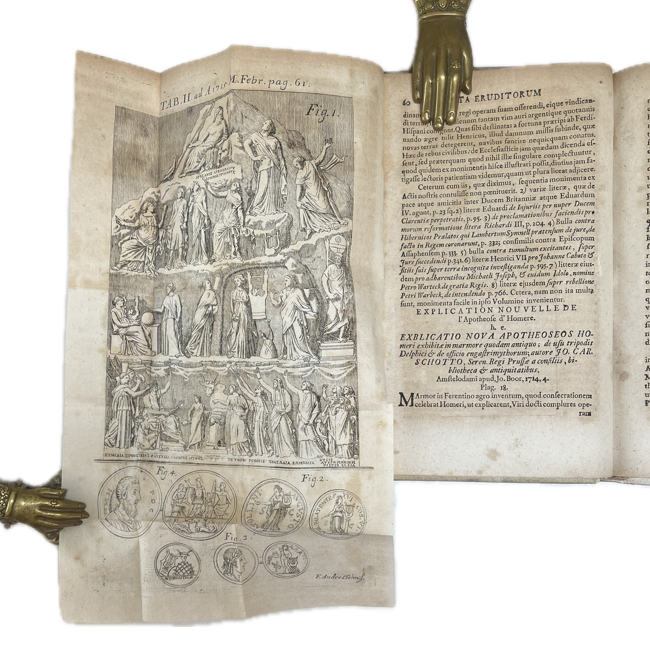 TAB. II. ad A. 1715 M. Febr. pag. 61.
Fig. 1.
Fig. 4.
Fig. 2.
Fig. 3.
60 ACTA ERUDITORUM
regi operam suam offerendi, eique vindican-
tantam vim auri argentique quotannis
Hispani Quas sibi destinatas a fortuna præripi ab Ferdi-
nando ægre tulit Henricus, illud damnum missis subinde, quæ
novas terras detegerent, navibus sarcire nequicquam conatus.
Hæc de rebus civilibus: de Ecclesiasticis jam quædam dicenda es-
sent, sed præterquam quod nihil illæ singulare complectuntur,
quod quidem ex monimentis hisce illustrari possit, diutius jam fa-
tigasse lectoris patientiam videmur, quam ut plura liceat adjicere.
Ceterum cum iis, quæ diximus, sequentia monimenta ex
Actis nostris contulisse non pœnituerit. 2) variæ literæ, quæ de
pace atque amicitia inter Ducem Britanniæ atque Eduardum
IV. agunt, p. 23 sq. 2) literæ Eduardi de Injuriis per nuper Ducem
Clarentiæ perpetratis, p. 95. 3) de proclamationibus faciendis pro
morum reformatione litera Richardi III, p. 204. 4) Bulla contra
Hibernicos Prælatos qui Lambertum Symnell prætensum de jure, de
facto in Regem coronarunt, p. 332; consimilis contra Episcopum
Assaphensem p. 333. 5) bulla contra tumultum excitantes, super
Jure succedendi p. 326. 6) literæ Henrici VII pro Johanne Caboto &
filiis suis super terra incognita investiganda p. 595. 7) literæ ejus-
dem pro adhærentibus Michaeli Joseph, & euidam Idolo, nomine
Petro Warbeck de gratia Regis. 8) literæ ejusdem super rebellione
Petri Warbeck, de intendendo p. 766. Cetera, nam non ita multa
sunt, monimenta facile in ipso Volumine invenientur.
EXPLICATION NOUVELLE DE
l'Apotheose d'Homere.
h. e.
EXPLICATIO NOVA APOTHEOSEOS HO-
meri exhibitæ in marmore quodam antiquo; de usu tripodis
Delphici & de officio engastrimythorum; autore JO. CAR.
SCHOTTO, Seren. Regi Prussæ a consiliis, bi-
bliotheca & antiquitatibus.
Amstelodami apud, Jo. Boor, 1714, 4.
Plag. 18.
Marmor in Ferentino agro inventum, quod consecrationem
celebrat Homeri, ut explicarent, Viri docti complures ope-
ram